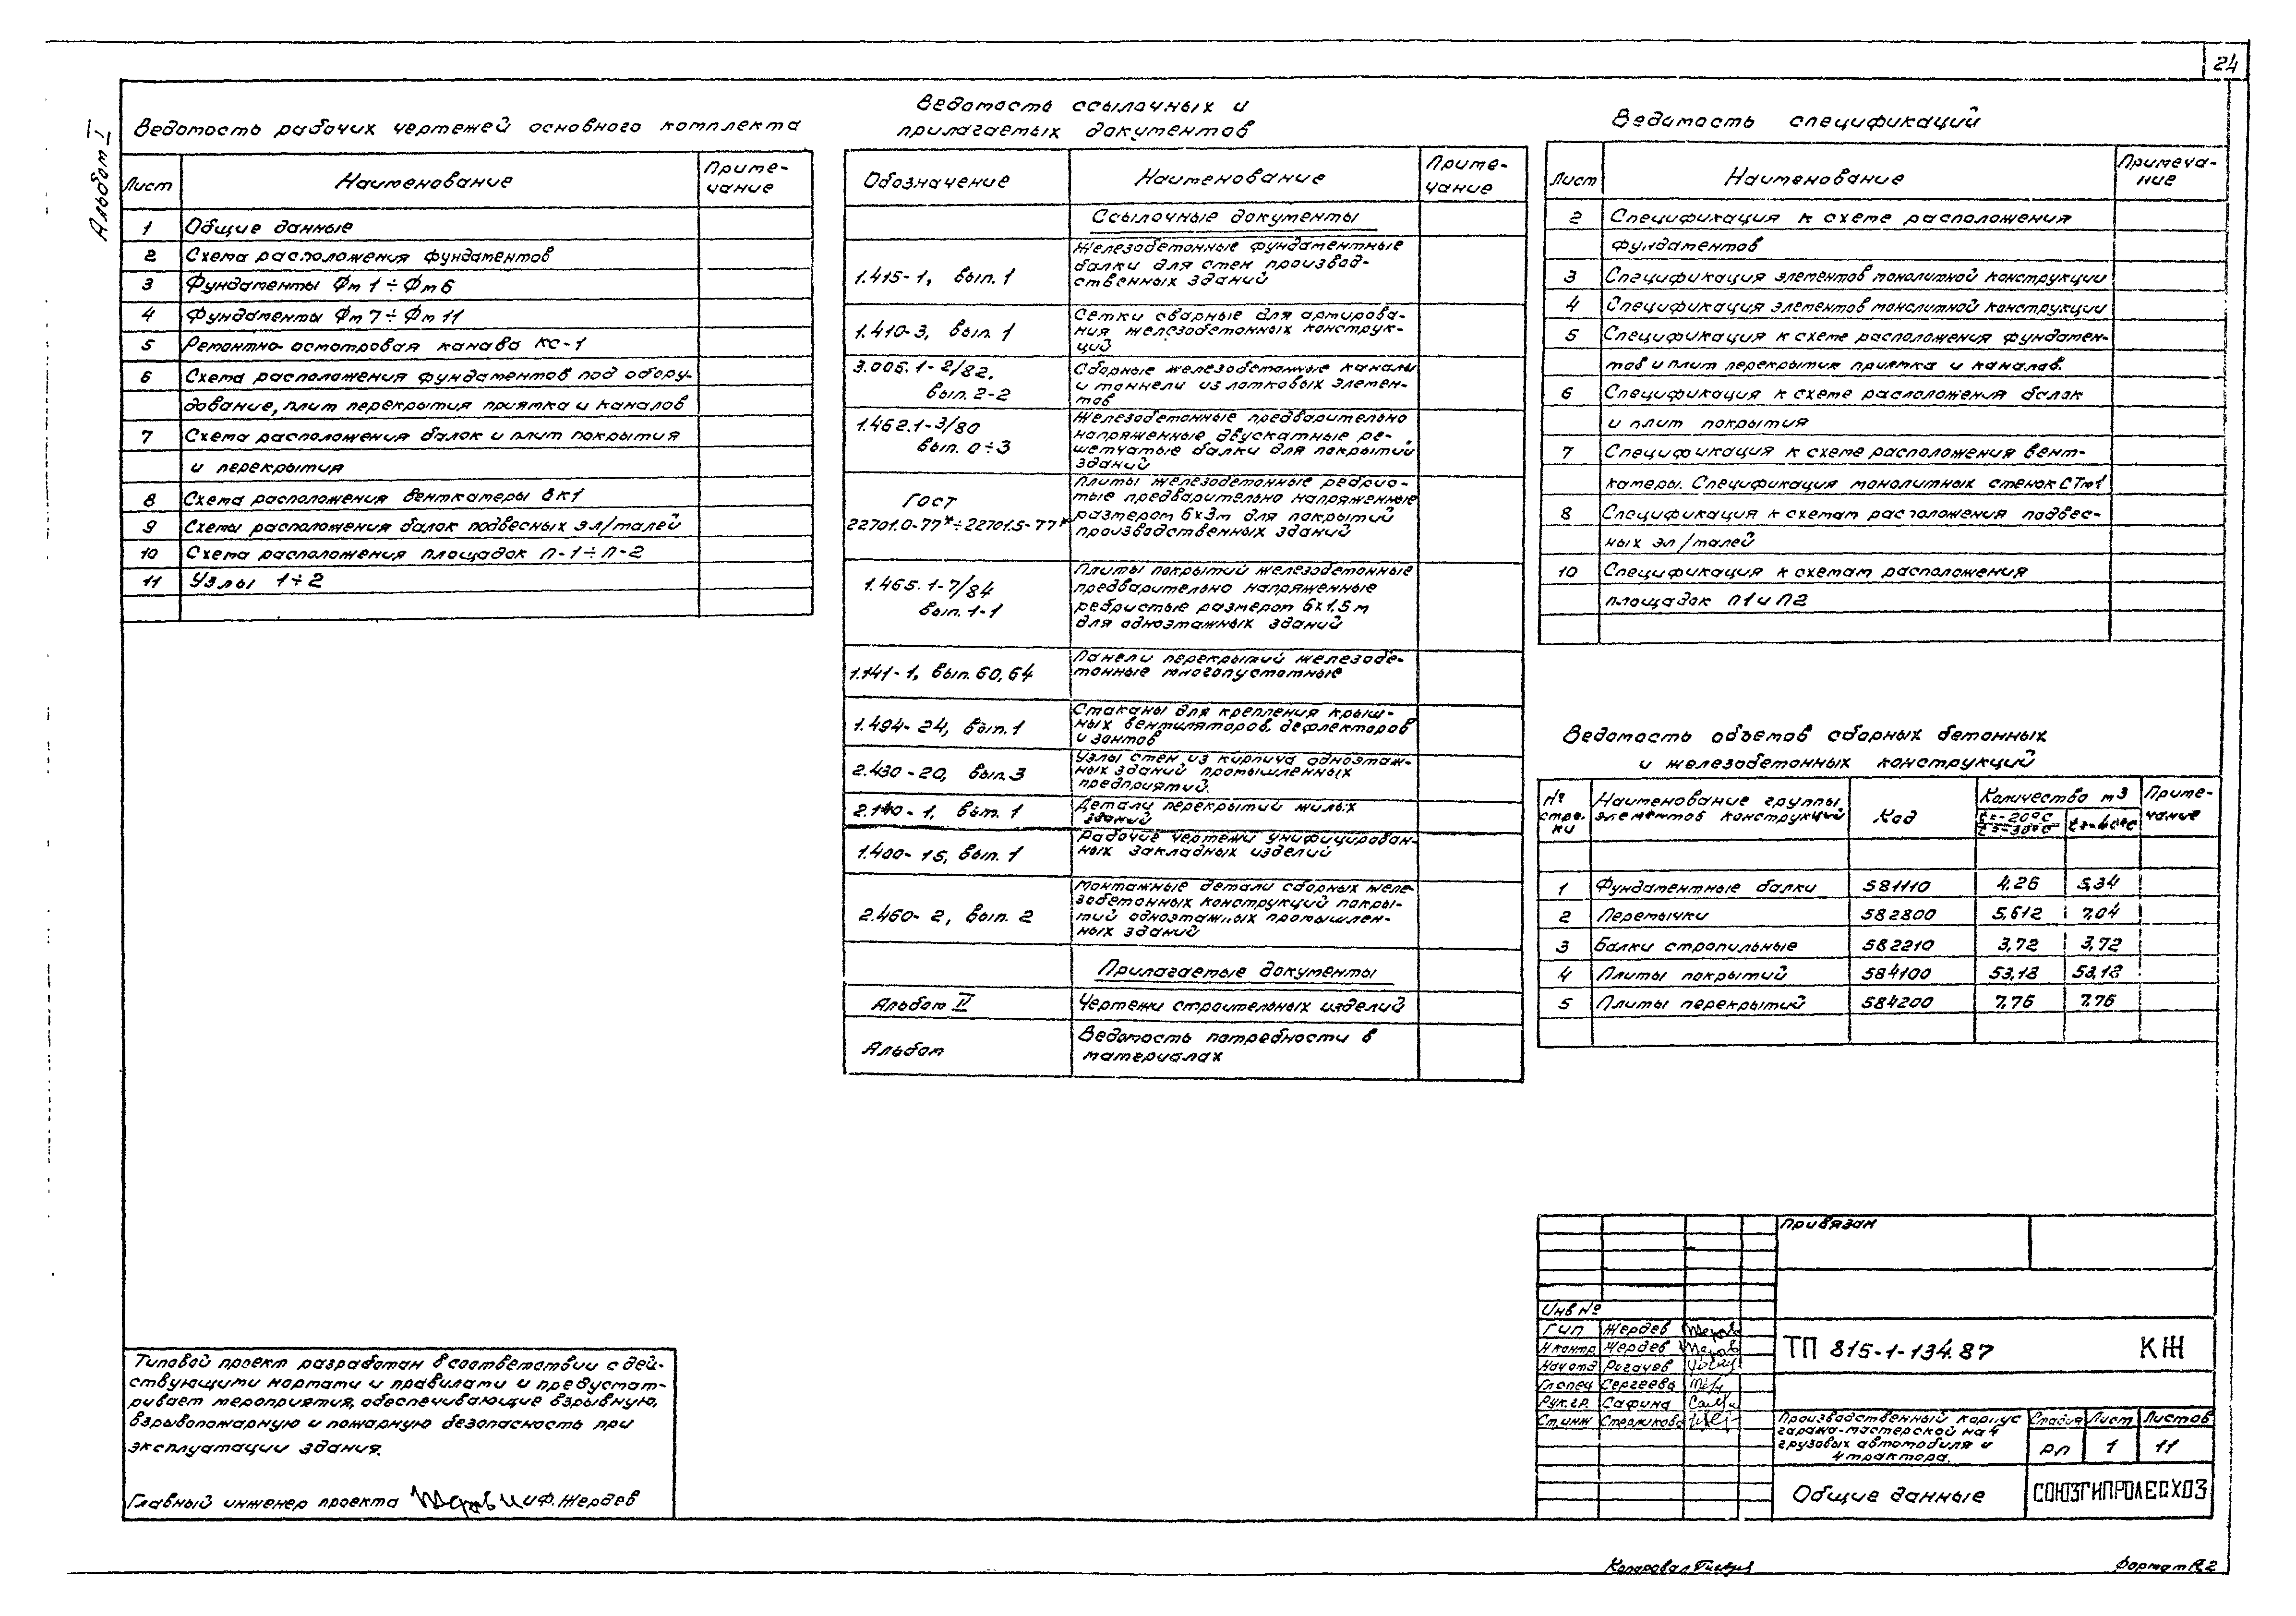 24
Альбом I
Ведомость рабочих чертежей основного комплекта
Лист
Наименование
Приме-
чание
1 Общие данные
2 Схема расположения фундаментов
3 Фундаменты Фм 1 ÷ Фм 6
4 Фундаменты Фм 7 ÷ Фм 11
5 Ремонтно-осмотровая канава КС-1
6 Схема расположения фундаментов под обору-
дование, плит перекрытия приямка и каналов
7 Схема расположения балок и плит покрытия
и перекрытия
8 Схема расположения венткамеры ВК1
9 Схемы расположения балок подвесных эл/талей
10 Схема расположения площадок П-1÷П-2
11 Узлы 1÷2
Ведомость ссылочных и
прилагаемых документов
Обозначение
Наименование
Приме-
чание
Ссылочные документы
1.415-1, вып. 1
Железобетонные фундаментные
балки для стен производ-
ственных зданий
1.410-3, вып. 1
Сетки сварные для армирова-
ния железобетонных конструк-
ций
3.006.1-2/82.
вып. 2-2
Сборные железобетонные каналы
и тоннели из лотковых элемен-
тов
1.462.1-3/80
вып. 0÷3
Железобетонные предварительно
напряженные двускатные ре-
шетчатые балки для покрытий
зданий
ГОСТ
22701.0-77*÷22701.5-77*
Плиты железобетонные ребрис-
тые предварительно напряженные
размером 6х3м для покрытий
производственных зданий
1.465.1-7/84
вып. 1-1
Плиты покрытий железобетонные
предварительно напряженные
ребристые размером 6х1,5 м
для одноэтажных зданий
1.141-1, вып. 60, 64
Панели перекрытий железобе-
тонные многопустотные
1.494-24, вып. 1
Стаканы для крепления крыш-
ных вентиляторов, дефлекторов
и зонтов
2.430-20, вып. 3
Узлы стен из кирпича одноэтаж-
ных зданий промышленных
предприятий.
2.140-1, вып. 1
Детали перекрытий жилых
зданий
1.400-15, вып. 1
Рабочие чертежи унифицирован-
ных закладных изделий
2.460-2, вып. 2
Монтажные детали сборных желе-
зобетонных конструкций покры-
тий одноэтажных промышлен-
ных зданий
Прилагаемые документы
Альбом II
Чертежи строительных изделий
Альбом
Ведомость потребности в
материалах
Ведомость спецификаций
Лист
Наименование
Примеча-
ние
2 Спецификация к схеме расположения
фундаментов
3 Спецификация элементов монолитной конструкции
4 Спецификация элементов монолитной конструкции
5 Спецификация к схеме расположения фундамен-
тов и плит перекрытия приямка и каналов.
6 Спецификация к схеме расположения балок
и плит покрытия
7 Спецификация к схеме расположения вент-
камеры. Спецификация монолитных стенок СТм1
8 Спецификация к схемам расположения подвес-
ных эл/талей
10 Спецификация к схемам расположения
площадок П1 и П2
Ведомость объемов сборных бетонных
и железобетонных конструкций
№
стро-
ки
Наименование группы
элементов конструкций
Код
Количество м3
t=-20°С
t=-30°С
t=-40°С
Приме-
чание
1 Фундаментные балки 581110 4,26 5,34
2 Перемычки 582800 5,612 7,04
3 Балки стропильные 582210 3,72 3,72
4 Плиты покрытий 584100 53,18 53,18
5 Плиты перекрытий 584200 7,76 7,76
Типовой проект разработан в соответствии с дей-
ствующими нормами и правилами и предусмат-
ривает мероприятия, обеспечивающие взрывную,
взрывопожарную и пожарную безопасность при
эксплуатации здания.
Главный инженер проекта И.Ф. Жердев
Привязан
Инв №
ГИП Жердев
Н контр Жердев
Нач отд Рогачев
Гл спец Сергеева
Рук. гр. Сафина
Ст. инж Стерликова
ТП 815-1-134.87 КЖ
Производственный корпус
гаража-мастерской на 4
грузовых автомобиля и
4 трактора.
Стадия Лист Листов
РП 1 11
Общие данные
СОЮЗГИПРОЛЕСХОЗ
Копировал
Формат А2